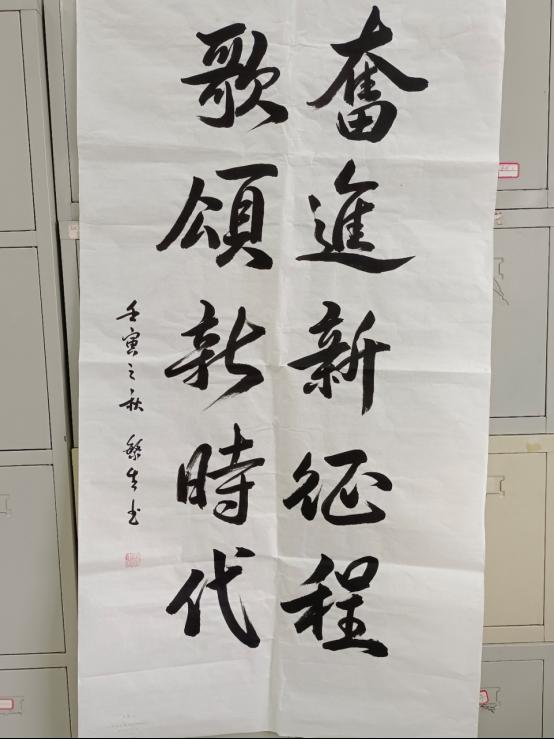 奮進新征程
歌頌新時代
壬寅之秋